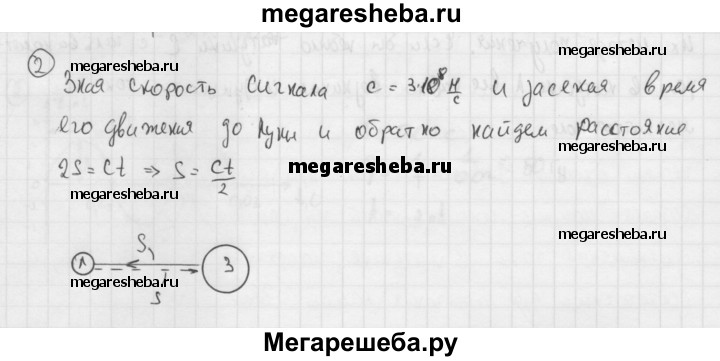 megaresheba.ru
② Зная скорость сигнала c = 3·10⁸ м/с и засекая время
его движения до Луны и обратно найдем расстояние
2S = Ct ⇒ S = Ct/2
S₁
Л З
S
megaresheba.ru
megaresheba.ru
megaresheba.ru
megaresheba.ru
megaresheba.ru
megaresheba.ru
megaresheba.ru
Мегарешеба.ру